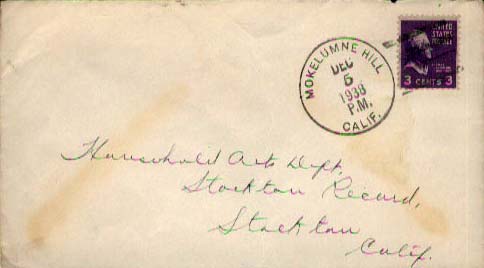 MOKELUMNE HILL
DEC
5
1938
P.M.
CALIF.
UNITED
STATES
POSTAGE
3 CENTS 3
Household Arts Dept,
Stockton Record,
Stockton
Calif.